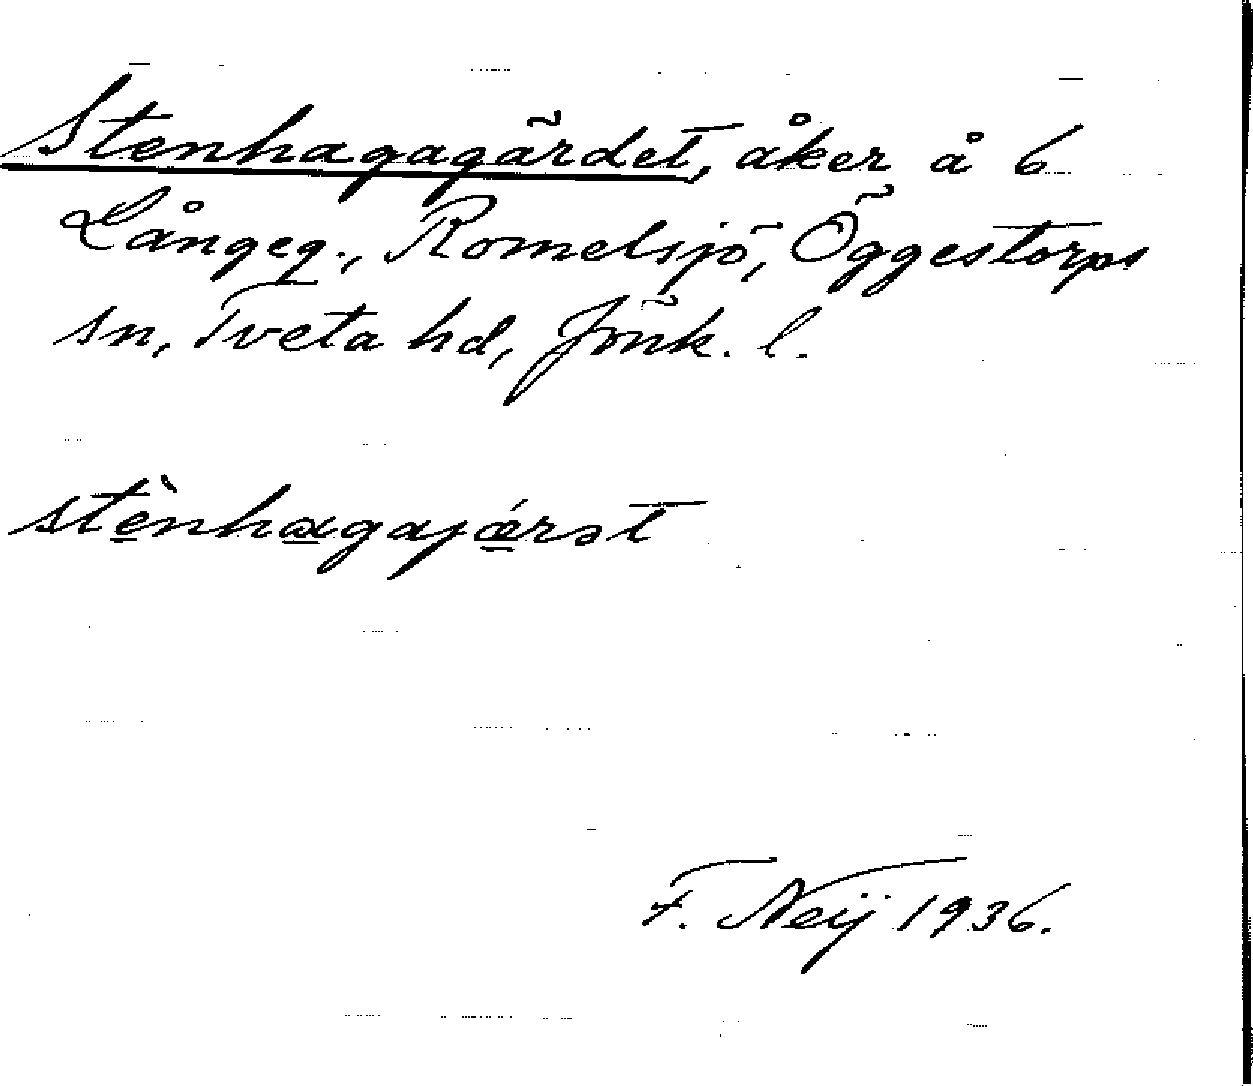 Stenhagagärdet, åker å 6
Långeg., Romelsjö, Öggestorps
sn, Tveta hd, Jönk. l.
stènhagajǽrət
F. Neij 1936.